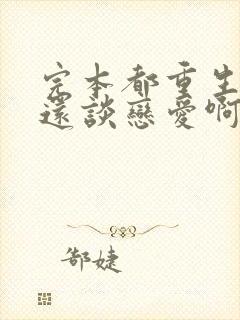 完本都重生
還談戀愛啊
郜婕